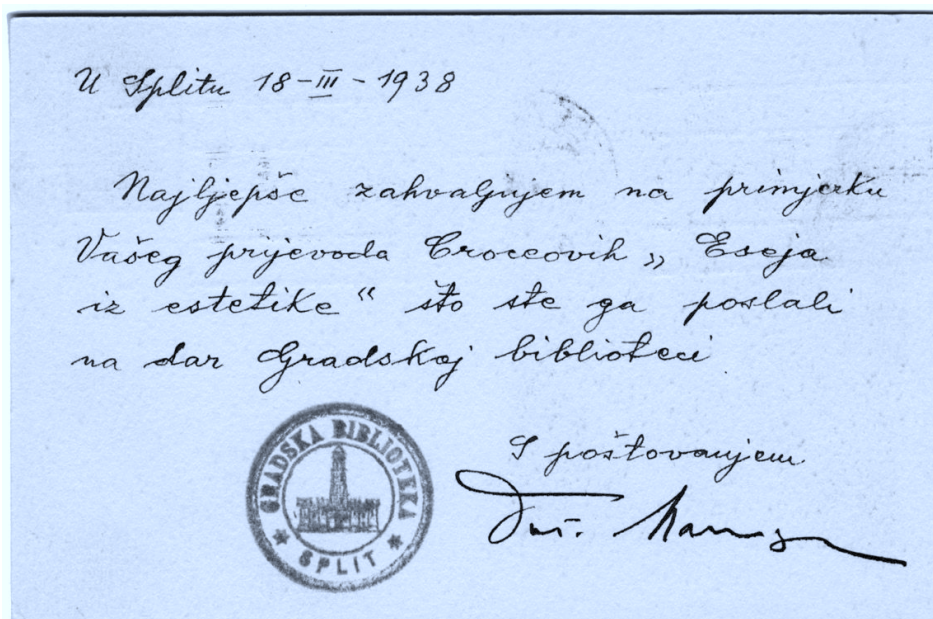 U Splitu 18-III-1938
Najljepše zahvaljujem na primjerku
Vašeg prijevoda Croceovih „Eseja
iz estetike“ što ste ga poslali
na dar Gradskoj biblioteci
GRADSKA BIBLIOTEKA
* SPLIT *
S poštovanjem